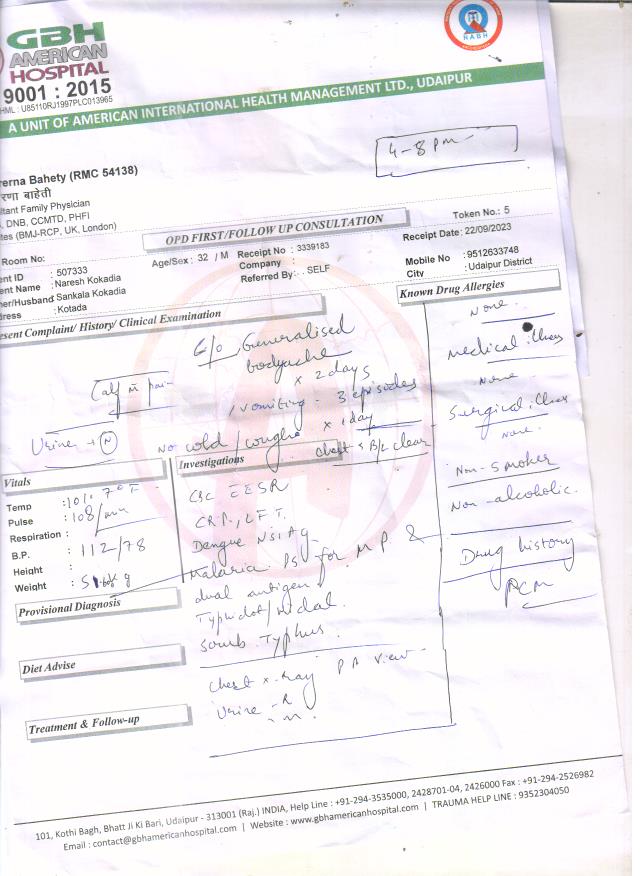 GBH
AMERICAN
HOSPITAL
9001 : 2015
HML : U85110RJ1997PLC013965
NABH
A UNIT OF AMERICAN INTERNATIONAL HEALTH MANAGEMENT LTD., UDAIPUR
4-8 pm
rerna Bahety (RMC 54138)
रणा बाहेती
ltant Family Physician
, DNB, CCMTD, PHFI
tes (BMJ-RCP, UK, London)
OPD FIRST/FOLLOW UP CONSULTATION
Token No.: 5
Room No:
Age/Sex : 32 / M
Receipt No : 3339183
Receipt Date : 22/09/2023
ent ID : 507333
Company :
Mobile No : 9512633748
ent Name : Naresh Kokadia
Referred By : SELF
City : Udaipur District
her/Husband Sankala Kokadia
dress : Kotada
esent Complaint/ History/ Clinical Examination
Known Drug Allergies
None
C/o Generalised
bodyache
x 2 days
Calf m pain
/ vomiting - 3 episodes
x 1 day
Urine → N
No cold / cough
Chest B/L clear
medical illness
None
Surgical illness
None
Non-smoker
Non-alcoholic
Drug history
PCM
Vitals
Temp : 101.7°F
Pulse : 108/min
Respiration :
B.P. : 112/78
Height :
Weight :
Investigations
CBC ESR
CRP, LFT
Dengue NS1 Ag
Malaria PS for MP &
dual antigen
Typhidot/widal
Scrub Typhus
Chest X-ray PA view
Urine - R
m
Provisional Diagnosis
Diet Advise
Treatment & Follow-up
101, Kothi Bagh, Bhatt Ji Ki Bari, Udaipur - 313001 (Raj.) INDIA, Help Line : +91-294-3535000, 2428701-04, 2426000 Fax : +91-294-2526982
Email : contact@gbhamericanhospital.com | Website : www.gbhamericanhospital.com | TRAUMA HELP LINE : 9352304050